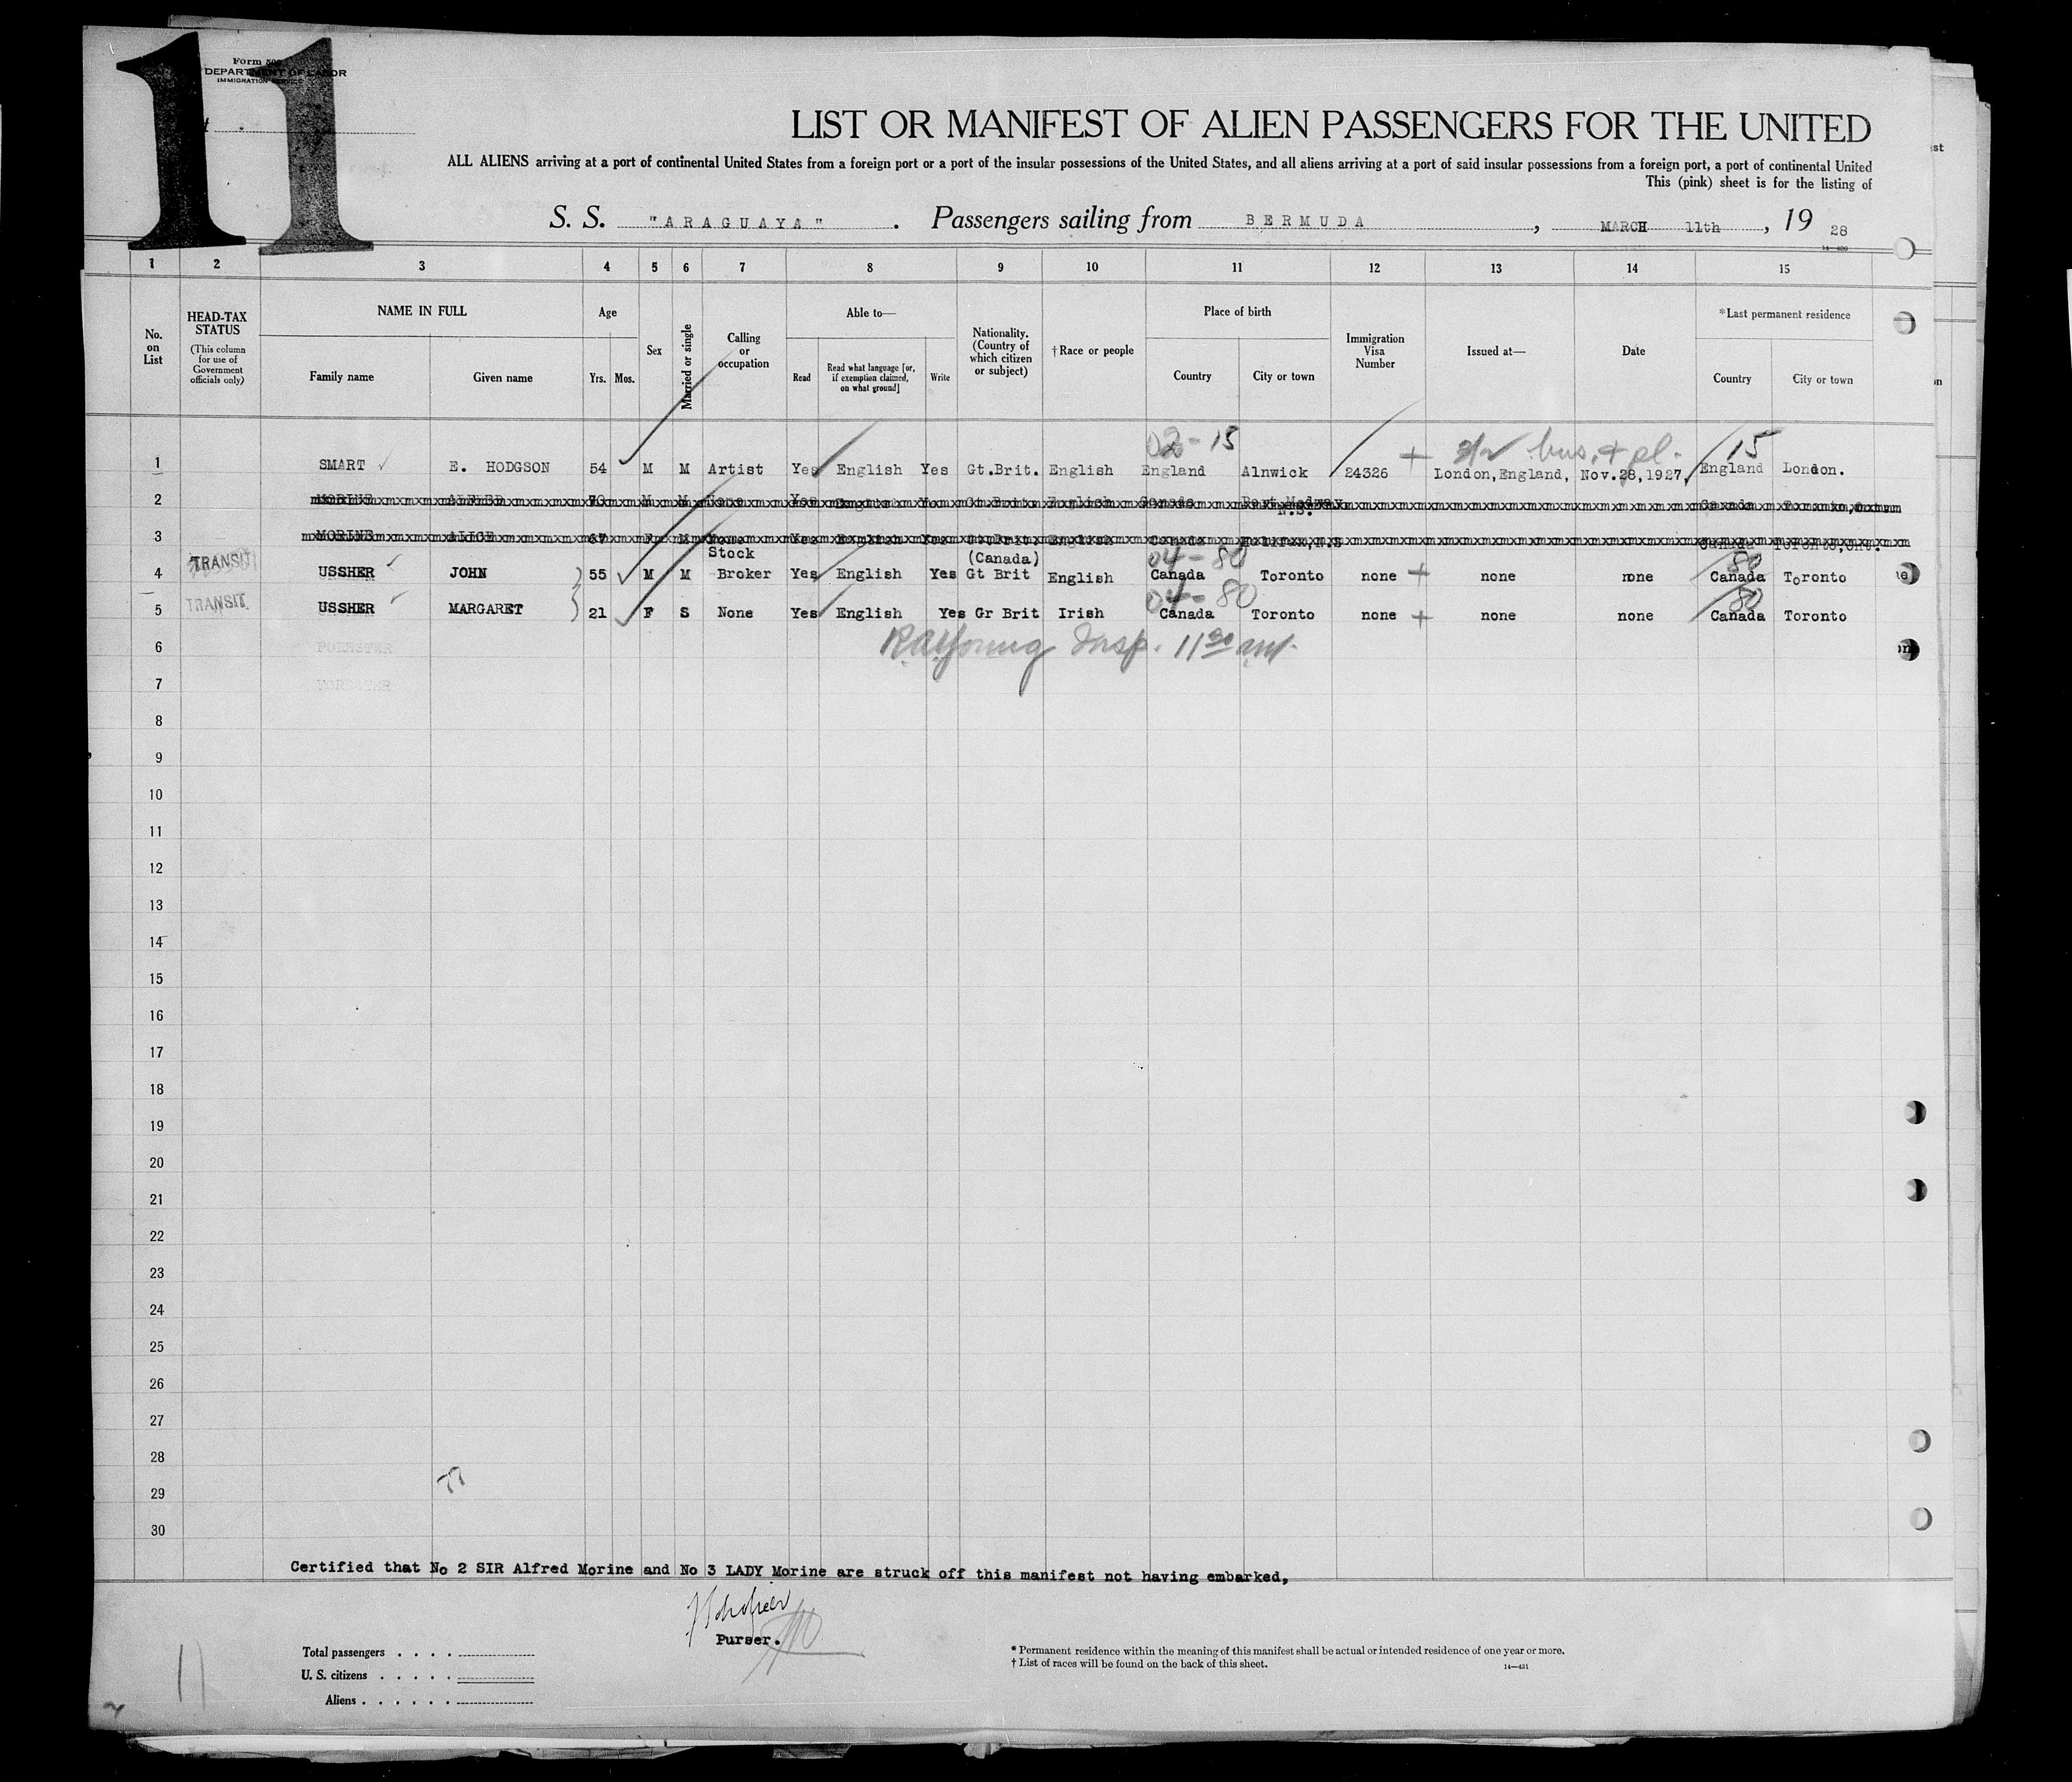 11
Form 500
DEPARTMENT OF LABOR
IMMIGRATION SERVICE
LIST OR MANIFEST OF ALIEN PASSENGERS FOR THE UNITED
ALL ALIENS arriving at a port of continental United States from a foreign port or a port of the insular possessions of the United States, and all aliens arriving at a port of said insular possessions from a foreign port, a port of continental United
This (pink) sheet is for the listing of
S. S. "ARAGUAYA". Passengers sailing from BERMUDA, MARCH 11th, 19 28
1 2 3 4 5 6 7 8 9 10 11 12 13 14 15
No. on List
HEAD-TAX STATUS
(This column for use of Government officials only)
NAME IN FULL
Family name Given name
Age
Yrs. Mos.
Sex
Married or single
Calling or occupation
Able to—
Read
Read what language [or, if exemption claimed, on what ground]
Write
Nationality. (Country of which citizen or subject)
†Race or people
Place of birth
Country City or town
Immigration Visa Number
Issued at—
Date
*Last permanent residence
Country City or town
02-15 bus. + pl. 15
1 SMART E. HODGSON 54 M M Artist Yes English Yes Gt.Brit. English England Alnwick 24326 London,England, Nov.28,1927, England London.
2 MORINE ALFRED 70 M M None Yes English Yes Gt Brit English Canada Port Medway N.S. Canada Toronto,Ont.
3 MORINE ALICE 67 F M None Yes English Yes Gt.Brit. English Canada Halifax,N.S Canada Toronto,Ont.
Stock (Canada) 04-80 80
TRANSIT 4 USSHER JOHN 55 M M Broker Yes English Yes Gt Brit English Canada Toronto none none none Canada Toronto
04-80 80
TRANSIT 5 USSHER MARGARET 21 F S None Yes English Yes Gr Brit Irish Canada Toronto none none none Canada Toronto
6 RAYoung Insp. 11 30 am.
7
8
9
10
11
12
13
14
15
16
17
18
19
20
21
22
23
24
25
26
27
28
29
30
Certified that No 2 SIR Alfred Morine and No 3 LADY Morine are struck off this manifest not having embarked,
Purser.
Total passengers . . . .
U. S. citizens . . . . .
Aliens . . . . . .
* Permanent residence within the meaning of this manifest shall be actual or intended residence of one year or more.
† List of races will be found on the back of this sheet.
14—431
11